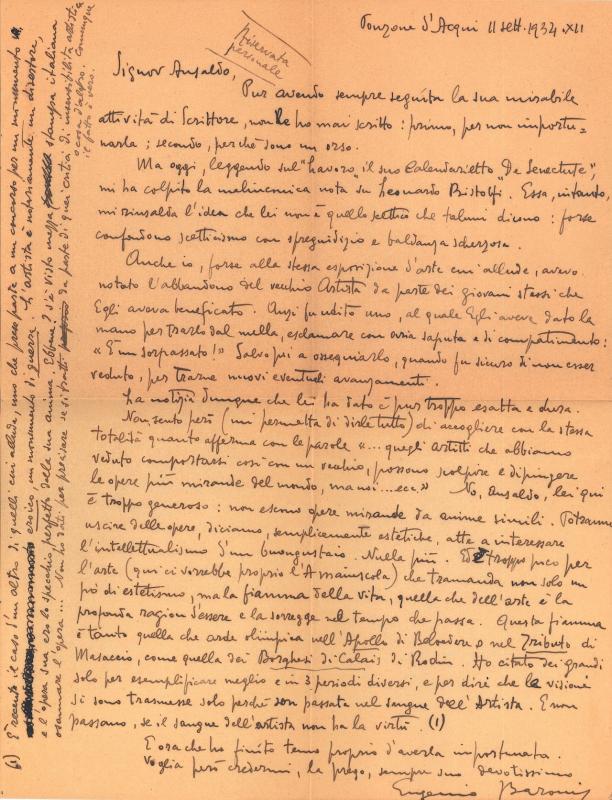 Ponzone d'Acqui 11 sett. 1934. XII
Riservata
personale
Signor Ansaldo,
Pur avendo sempre seguita la sua mirabile
attività di Scrittore, non le ho mai scritto: primo, per non importu-
narla; secondo, perché sono un orso.
Ma oggi, leggendo sul "Lavoro" il suo Calendarietto "De Senectute",
mi ha colpito la melinconica nota su Leonardo Bistolfi. Essa, intanto,
mi rinsalda l'idea che lei non è quello scettico che taluni dicono: forse
confondono scetticismo con spregiudizio e baldanza scherzosa.
Anche io, forse alla stessa esposizione d'arte cui allude, avevo
notato l'abbandono del vecchio Artista da parte dei giovani stessi che
Egli aveva beneficato. Anzi fu udito uno, al quale Egli aveva dato la
mano per trarlo dal nulla, esclamare con aria saputa e di compatimento:
«È un sorpassato!» Salvo poi a ossequiarlo, quando fu sicuro di non esser
veduto, per trarne nuovi eventuali avanzamenti.
La notizia dunque che lei ha dato è pur troppo esatta e dura.
Non sento però (mi permetta di dirle tutto) di accogliere con la stessa
totalità quanto afferma con le parole «... quegli artisti che abbiamo
veduto comportarsi così con un vecchio, possono scolpire e dipingere
le opere più mirande del mondo, ma noi... ecc.» No, Ansaldo, lei qui
è troppo generoso: non escono opere mirande da anime simili. Potranno
uscire delle opere, diciamo, semplicemente estetiche, atte a interessare
l'intellettualismo d'un buongustaio. Nulla più. Ed è troppo poco per
l'arte (qui ci vorrebbe proprio l'A maiuscola) che tramanda non solo un
po' di estetismo, ma la fiamma della vita, quella che dell'arte è la
profonda ragion d'essere e la sorregge nel tempo che passa. Questa fiamma
è tanto quella che arde olimpica nell'Apollo di Belvedere e nel Tributo di
Masaccio, come quella dei Borghesi di Calais di Rodin. Ho citato dei grandi
solo per esemplificare meglio e in 3 periodi diversi, e per dire che le visioni
si sono trasmesse solo perché son passate nel sangue dell'Artista. E non
passano, se il sangue dell'artista non ha la virtù. (1)
E ora che ho finito temo proprio d'averla importunata.
Voglia però credermi, la prego, sempre suo devotissimo
Eugenio Baroni
(1) È recente il caso d'un altro di quelli cui allude, uno che prese parte a un concorso per un monumento
eroico, un monumento di guerra. L'artista è notoriamente un disertore,
e l'opera sua era lo specchio perfetto della sua anima. Ebbene? s'è visto mezza stampa italiana
osannare l'opera... Non ho dati per precisare se si tratti da parte di quei critici di insensibilità artistica
o cosa d'altro. Comunque
il fatto è vero.